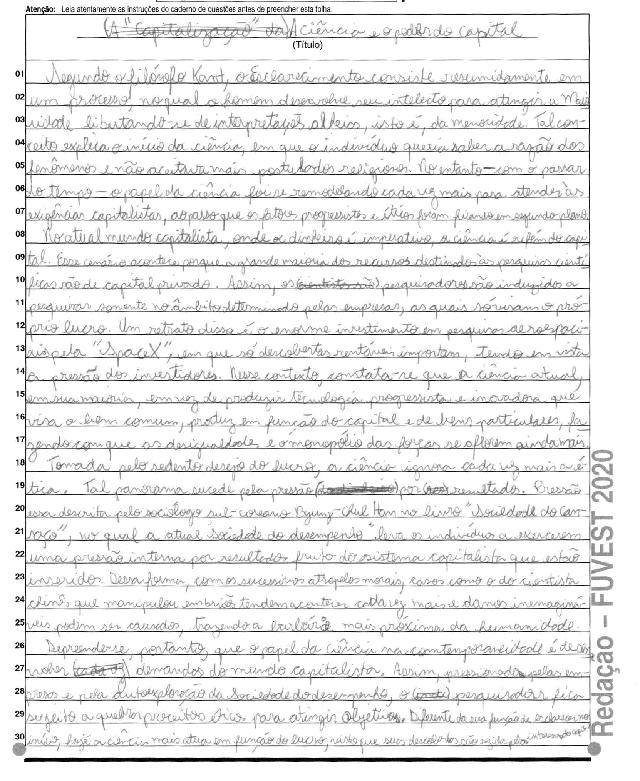 Atenção: Leia atentamente as instruções do caderno de questões antes de preencher esta folha.
(A "Capitalização" da) A ciência e o poder do capital
(Título)
01 Segundo o filósofo Kant, o Esclarecimento consiste resumidamente em
02 um processo, no qual o homem desenvolve seu intelecto para atingir a Maio
03 ridade libertando-se de interpretações alheias, isto é, da menoridade. Tal con-
04 ceito explica o início da ciência, em que o indivíduo queria saber a razão dos
05 fenômenos e não aceitava mais postulados religiosos. No entanto – com o passar
06 do tempo – o papel da ciência foi se remodelando cada vez mais para atender às
07 exigências capitalistas, ao passo que os fatores progressistas e éticos foram ficando em segundo plano.
08 No atual mundo capitalista, onde o dinheiro é imperativo, a ciência é refém do capi
09 tal. Esse cenário acontece porque a grande maioria dos recursos destinado às pesquisas cientí
10 ficas vão de capital privado. Assim, os (cientistas são) pesquisadores são induzidos a
11 pesquisar somente no âmbito determinado pelas empresas, as quais só visam o pró
12 prio lucro. Um retrato disso é o enorme investimento em pesquisas aeroespaci
13 ais pela "SpaceX", em que só descobertas rentáveis importam, tendo em vista
14 a pressão dos investidores. Nesse contexto, constata-se que a ciência atual,
15 em sua maioria, em vez de produzir tecnologia progressista e inovadora que
16 visa o bem comum, produz em função do capital e de bens particulares, fa
17 zendo com que as desigualdades e o monopólio das forças se aflorem ainda mais.
18 Tomada pelo sedento desejo do lucro, a ciência ignora cada vez mais a é-
19 tica. Tal panorama sucede pela pressão por resultados. Pressão
20 essa descrita pelo sociólogo sul-coreano Byung-Chul Han no livro "Sociedade do Can-
21 saço", no qual a atual "sociedade do desempenho" leva os indivíduos a exercerem
22 uma pressão interna por resultados fruto do sistema capitalista que estão
23 inseridos. Dessa forma, com os sucessivos atropelos morais, casos como o do cientista
24 chinês que manipulou embriões tendem a acontecer cada vez mais e danos inimaginá
25 veis podem ser causados, trazendo a barbárie mais próxima da humanidade.
26 Depreende-se, portanto, que o papel da ciência na contemporaneidade é de
27 demandas do mundo capitalista. Assim, pressionado pelas em-
28 presas e pela autoexploração da Sociedade do desempenho, o pesquisador fica
29 sujeito a quebrar preceitos éticos para atingir objetivos. Diferente da sua função de esclarecer no
30 início, hoje a ciência mais atua em função do lucro, visto que suas descobertas são regidas pelos
Redação – FUVEST 2020